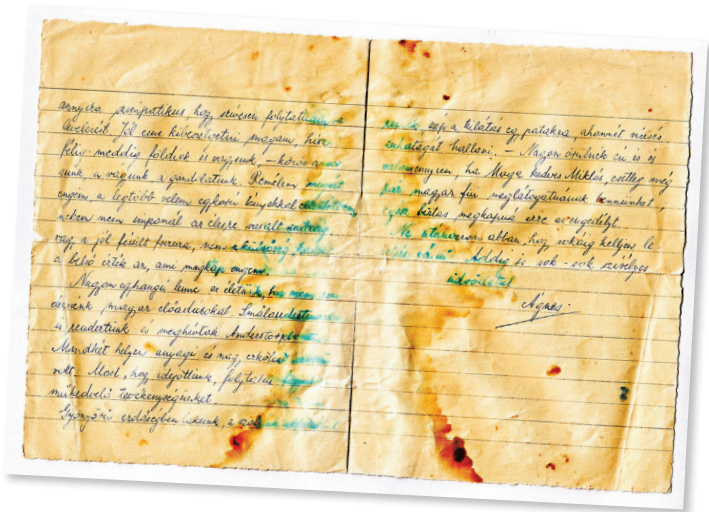 annyira szimpatikus, hogy szívesen folytatnám a
levelezést. Jól esne kibeszélgetni magam, hisz
félig-meddig földiek is vagyunk, – közös a
sunk, a vágyunk a gondolatunk. Remélem
engem, a legtöbb velem egykorú lányokkal
nekem nem imponál az élesre vasalt nadrág
vagy a jól fésült frizura, nem a külsőség,
a belső érték az, ami megkap engem.
Nagyon egyhangú lenne az életünk, ha nem
nénk magyar előadásokat.
is rendeztünk és meghívtak
Mindkét helyen anyagi és nagy erkölcsi
volt. Most, hogy idejöttünk, folytatni
műkedvelő tevékenységünket.
Gyönyörű erdőségben lakunk, a
szép a kilátás egy patakra, ahonnét vízesés
zuhatagát hallani. – Nagyon örülnék én is és
ha Maga kedves Miklós, esetleg még
pár magyar fiú meglátogatnának bennünket,
biztos megkapná erre az engedélyt.
Ne
abban, hogy sokáig helyes le-
Addig is sok-sok szívélyes
üdvözlettel
Ágnes.